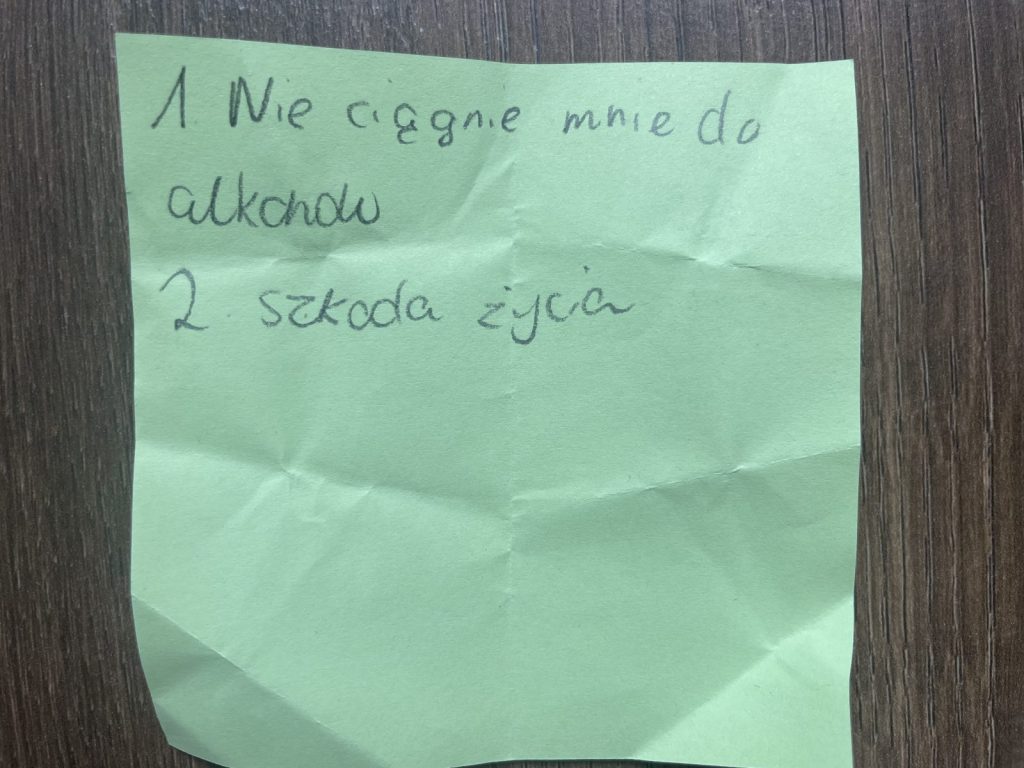 1. Nie ciągnie mnie do
alkoholu
2. szkoda życia